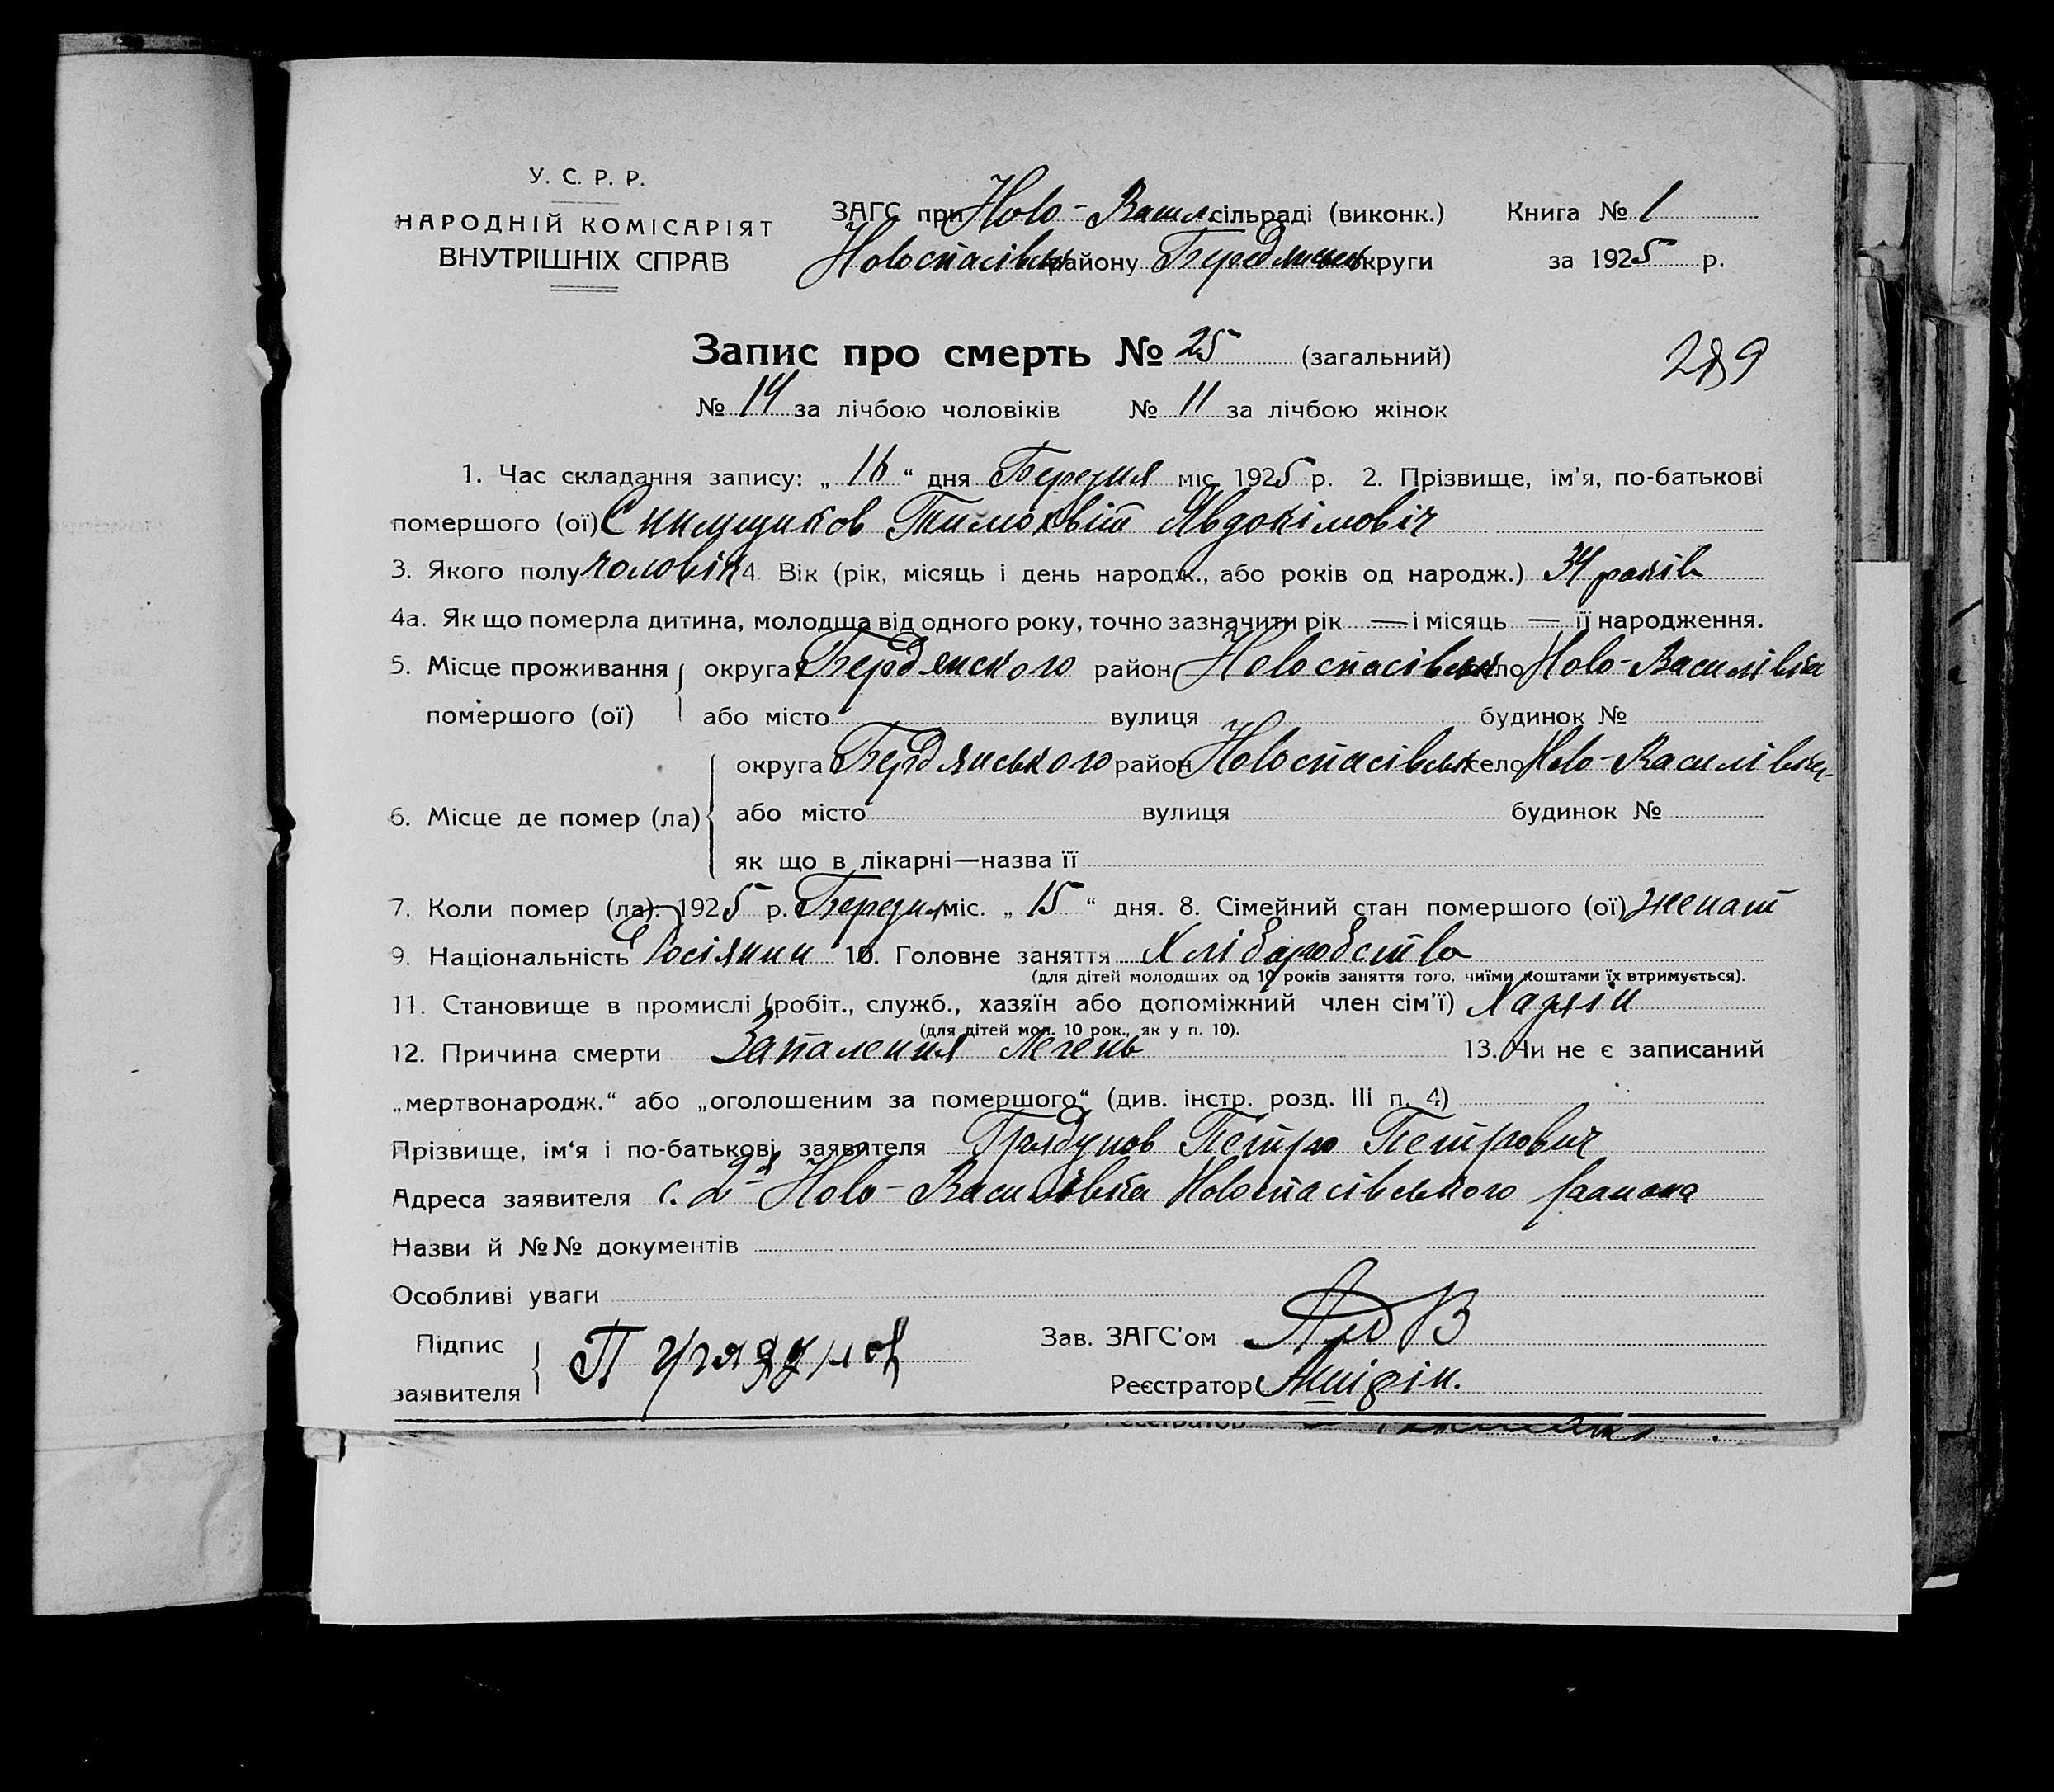 У. С. Р. Р.
НАРОДНІЙ КОМІСАРІЯТ
ВНУТРІШНІХ СПРАВ
ЗАГС при Ново-Васил. сільраді (виконк.) Книга № 1
Новоспасівськ району Бердянськ округи за 1925 р.
Запис про смерть № 25 (загальний)
289
№ 14 за лічбою чоловіків № 11 за лічбою жінок
1. Час складання запису: „ 16 “ дня Березня міс. 1925 р. 2. Прізвище, ім'я, по-батькові
помершого (ої) Тимохвій Явдокімовіч
3. Якого полу чоловік 4. Вік (рік, місяць і день народж., або років од народж.) 34 років
4а. Як що померла дитина, молодща від одного року, точно зазначити рік — і місяць — її народження.
5. Місце проживання округа Бердянского район Новоспасівськ село Ново-Василівка
помершого (ої) або місто вулиця будинок №
округа Бердянського район Новоспасівськ село Ново-Василівка
6. Місце де помер (ла)
або місто вулиця будинок №
як що в лікарні—назва її
7. Коли помер (ла). 1925 р. Березня міс. „ 15 “ дня. 8. Сімейний стан помершого (ої) женат
9. Національність Росіянин 10. Головне заняття Хліборобство
(для дітей молодших од 10 років заняття того, чиїми коштами їх втримується).
11. Становище в промислі (робіт., служб., хазяїн або допоміжний член сім'ї) Хазяїн
(для дітей мол. 10 рок., як у п. 10).
12. Причина смерти Запалення Легень 13. Чи не є записаний
„мертвонародж.“ або „оголошеним за помершого“ (див. інстр. розд. III п. 4)
Прізвище, ім'я і по-батькові заявителя Грядунов Петро Петрович
Адреса заявителя с. 2я Ново-Василівка Новоспасівського района
Назви й №№ документів
Особливі уваги
Підпис
заявителя
П Грядунов
Зав. ЗАГС'ом
Реєстратор
Реєстратор